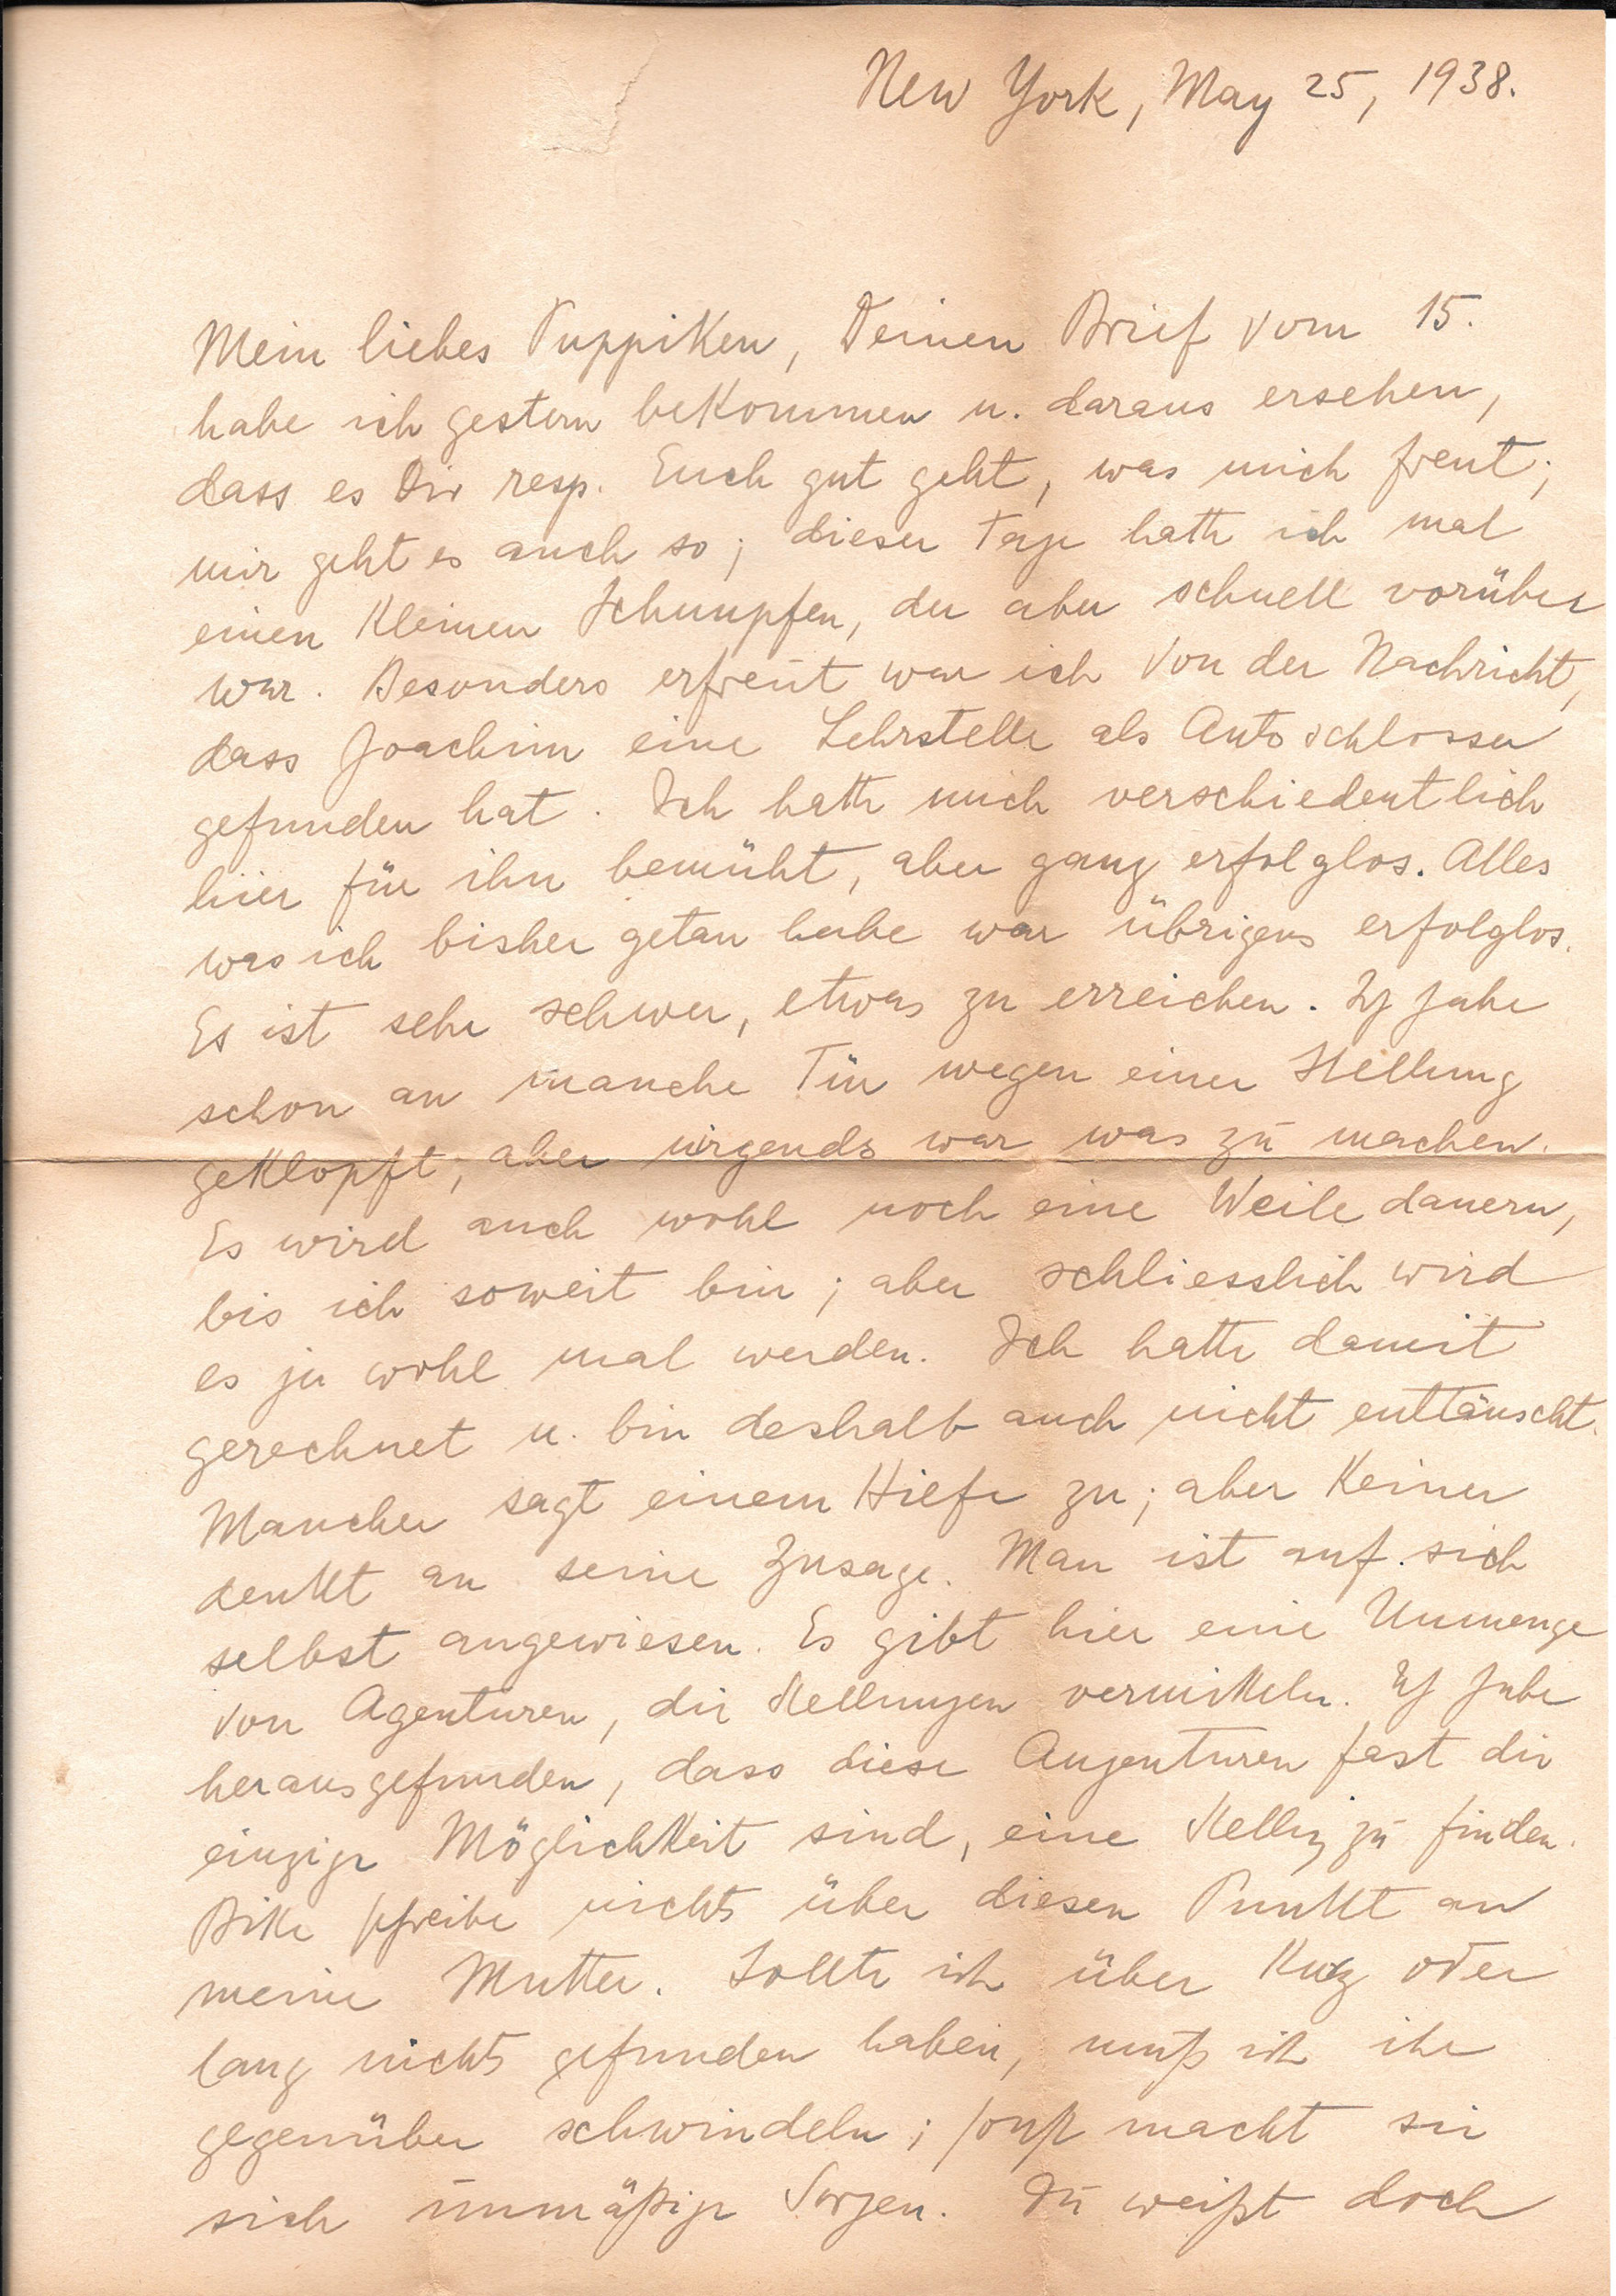 New York, May 25, 1938.
Mein liebes Puppiken, Deinen Brief vom 15.
habe ich gestern bekommen u. daraus ersehen,
dass es Dir resp. Euch gut geht, was mich freut;
mir geht es auch so; dieser Tage hatte ich mal
einen kleinen Schnupfen, der aber schnell vorüber
war. Besonders erfreut war ich von der Nachricht,
dass Joachim eine Lehrstelle als Autoschlosser
gefunden hat. Ich hatte mich verschiedentlich
hier für ihn bemüht, aber ganz erfolglos. Alles
was ich bisher getan habe war übrigens erfolglos.
Es ist sehr schwer, etwas zu erreichen. Ich habe
schon an manche Tür wegen einer Stellung
geklopft; aber nirgends war was zu machen.
Es wird auch wohl noch eine Weile dauern,
bis ich soweit bin; aber schliesslich wird
es ja wohl mal werden. Ich hatte damit
gerechnet u. bin deshalb auch nicht enttäuscht.
Mancher sagt einem Hilfe zu; aber keiner
denkt an seine Zusage. Man ist auf sich
selbst angewiesen. Es gibt hier eine Unmenge
von Agenturen, die Stellungen vermitteln. Ich habe
herausgefunden, dass diese Angenturen fast die
einzige Möglichkeit sind, eine Stellung zu finden.
Bitte schreibe nichts über diesen Punkt an
meine Mutter. Sollte ich über kurz oder
lang nichts gefunden haben, muß ich ihr
gegenüber schwindeln; sonst macht sie
sich unmäßige Sorgen. Du weißt doch